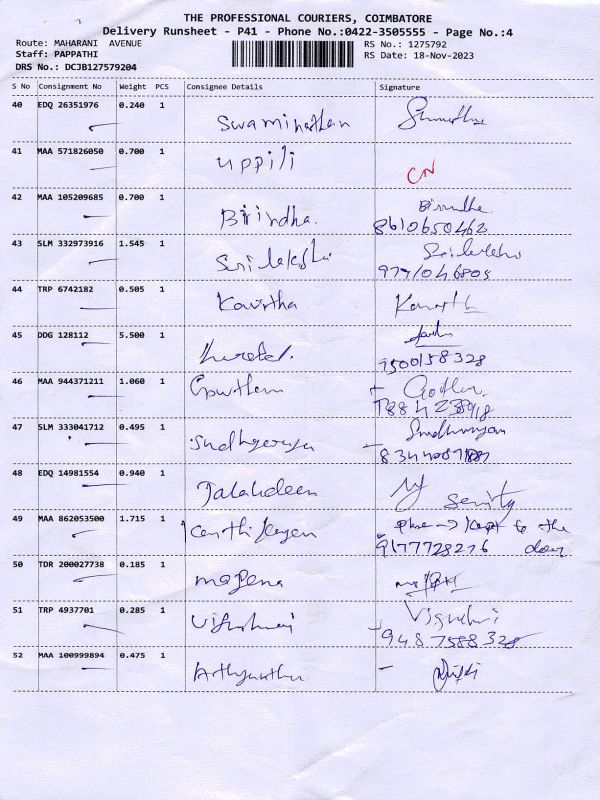 THE PROFESSIONAL COURIERS, COIMBATORE
Delivery Runsheet - P41 - Phone No.:0422-3505555 - Page No.:4
Route: MAHARANI AVENUE
RS No.: 1275792
Staff: PAPPATHI
RS Date: 18-Nov-2023
DRS No.: DCJB127579204
S No Consignment No Weight PCS Consignee Details Signature
40 EDQ 26351976 0.240 1
Swaminathan
41 MAA 571826050 0.700 1 Uppili
CN
42 MAA 105209685 0.700 1
Birindha. 8610650462
43 SLM 332973916 1.545 1
44 TRP 6742182 0.505 1
Kavitha
45 DDG 128112 5.500 1
9500158328
46 MAA 944371211 1.060 1
Gowtham
47 SLM 333041712 0.495 1
48 EDQ 14981554 0.940 1
Jalahdeen
49 MAA 862053500 1.715 1
Karthikeyen to the
9177728276 door
50 TDR 200027738 0.185 1
51 TRP 4937701 0.285 1
9487588328
52 MAA 100999894 0.475 1